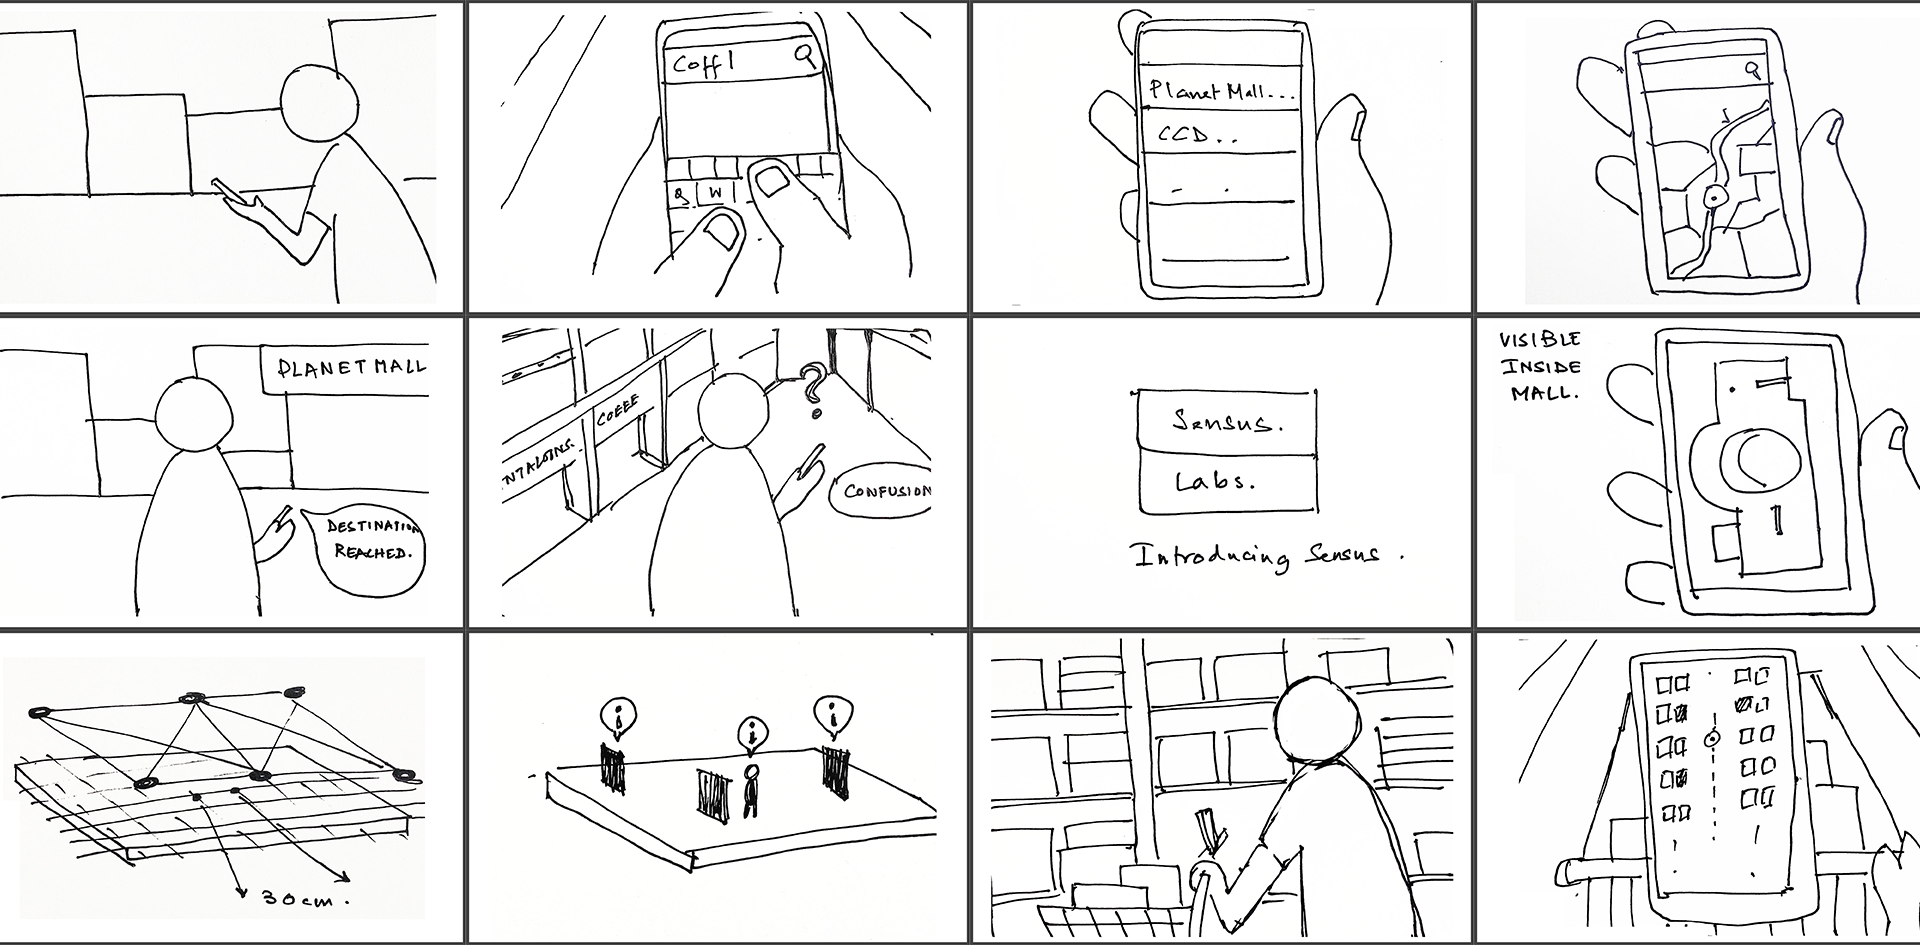 Coff|
Q W
Planet Mall...
CCD..
PLANET MALL
DESTINATION
REACHED.
COFEE
NTALOONS.
?
CONFUSION
Sensus.
Labs.
Introducing Sensus.
VISIBLE
INSIDE
MALL.
30cm.
i
i
i